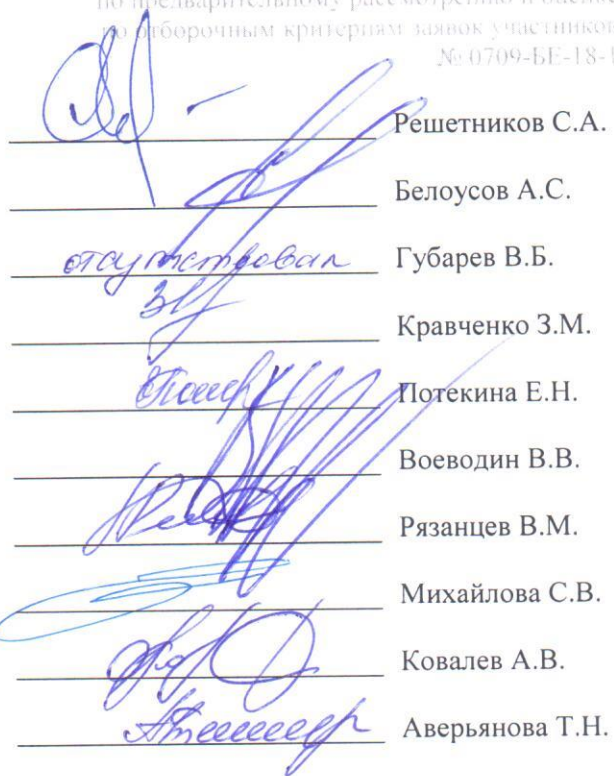 по предварительному рассмотрению и оценке
по отборочным критериям заявок участников
№ 0709-БЕ-18-
Решетников С.А.
Белоусов А.С.
отсутствовал Губарев В.Б.
Кравченко З.М.
Потекина Е.Н.
Воеводин В.В.
Рязанцев В.М.
Михайлова С.В.
Ковалев А.В.
Аверьянова Т.Н.